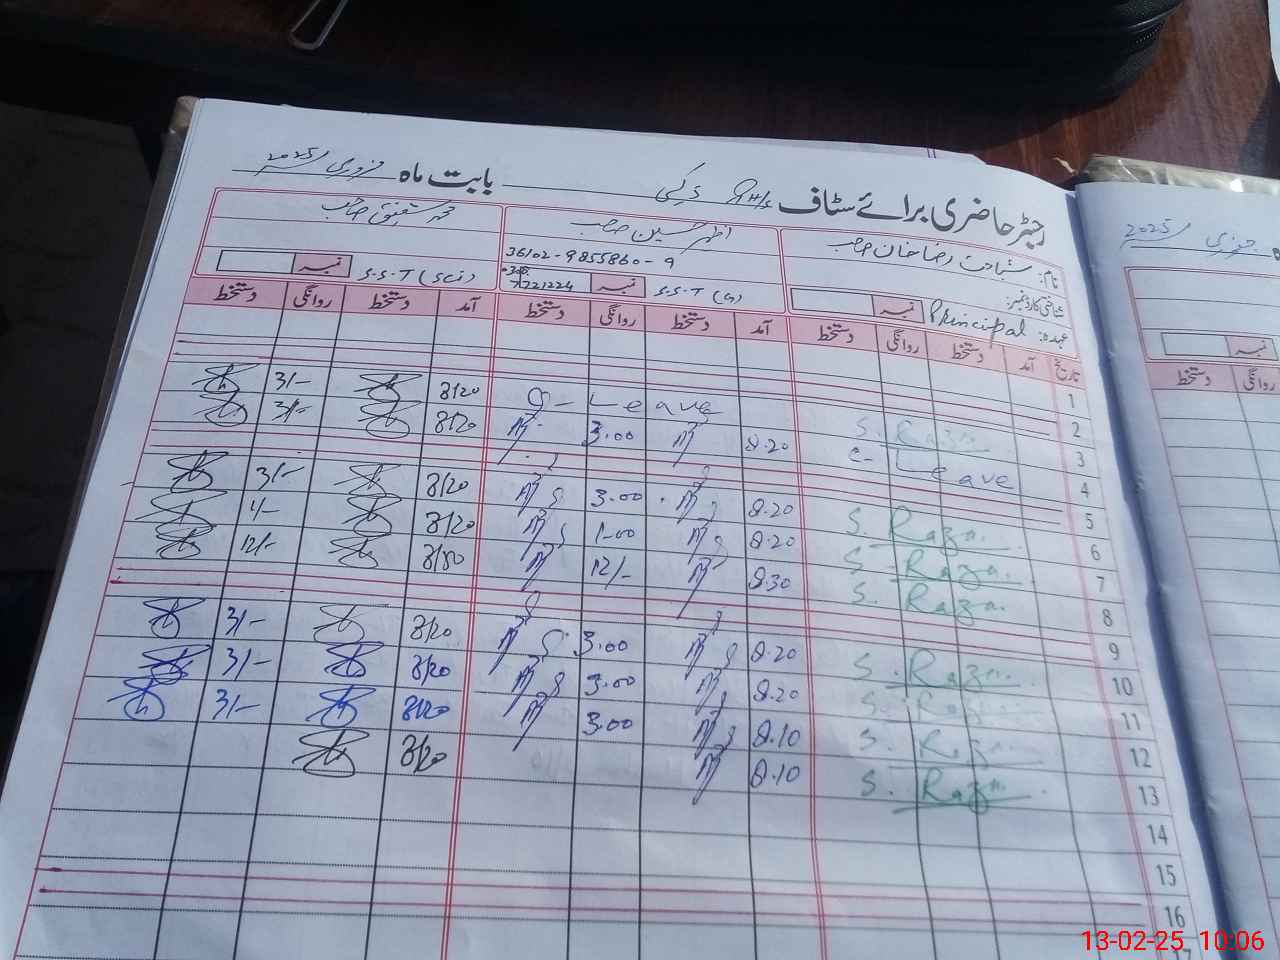 رجسٹر حاضری برائے سٹاف GHS بابت ماہ فروری 2025
نام: شباحت رضا خان صاحب
شناختی کارڈ نمبر:
عہدہ: Principal نمبر
اظہر حسین صاحب
36102-9855860-9
S.S.T (G) نمبر
7721224
محمد شفیق صاحب
S.S.T (Sci) نمبر
تاریخ آمد دستخط روانگی دستخط آمد دستخط روانگی دستخط آمد دستخط روانگی دستخط
1
2
3 S. Raza C-Leave 8/20 3/-
4 C-Leave 8.20 3.00 8/20 3/-
5
6 S. Raza 8.20 3.00 8/20 3/-
7 S. Raza 8.20 1.00 8/20 1/-
8 S. Raza 8.30 12/- 8/30 12/-
9
10 S. Raza 8.20 3.00 8/20 3/-
11 S. Raza 8.20 3.00 8/20 3/-
12 S. Raza 8.10 3.00 8/20 3/-
13 S. Raza 8.10 8/20
14
15
16
17
جنوری 2025
نمبر
روانگی دستخط
13-02-25 10:06